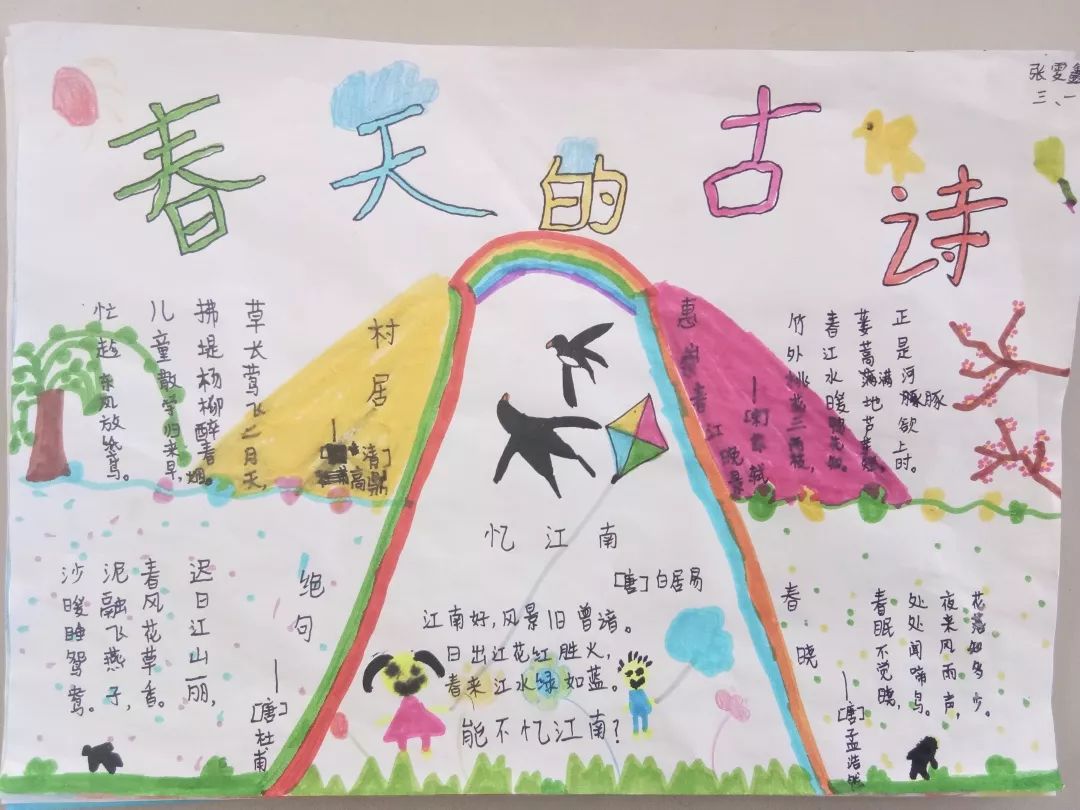 春天的古诗
张雯鑫
三、一
村居
—[清]高鼎
草长莺飞二月天,
拂堤杨柳醉春烟。
儿童散学归来早,
忙趁东风放纸鸢。
惠崇春江晚景
—[宋]苏轼
竹外桃花三两枝,
春江水暖鸭先知。
蒌蒿满地芦芽短,
正是河豚欲上时。
绝句
—[唐]杜甫
迟日江山丽,
春风花草香。
泥融飞燕子,
沙暖睡鸳鸯。
忆江南
[唐]白居易
江南好,风景旧曾谙。
日出江花红胜火,
春来江水绿如蓝。
能不忆江南?
春晓
—[唐]孟浩然
春眠不觉晓,
处处闻啼鸟。
夜来风雨声,
花落知多少。